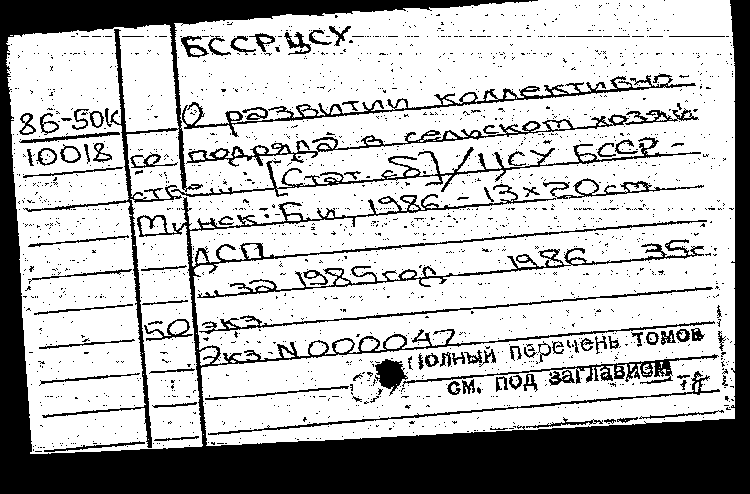 БССР. ЦСУ.
86-50к
10018
О развитии коллективно-
го подряда в сельском хозяй-
стве... : [Стат. сб.] / ЦСУ БССР -
Минск: Б.и., 1986. - 13 x 20 cm.
ДСП.
... за 1985 год. 1986 35с
50 экз.
Экз. N 000047
Полный перечень томов
см. под заглавием